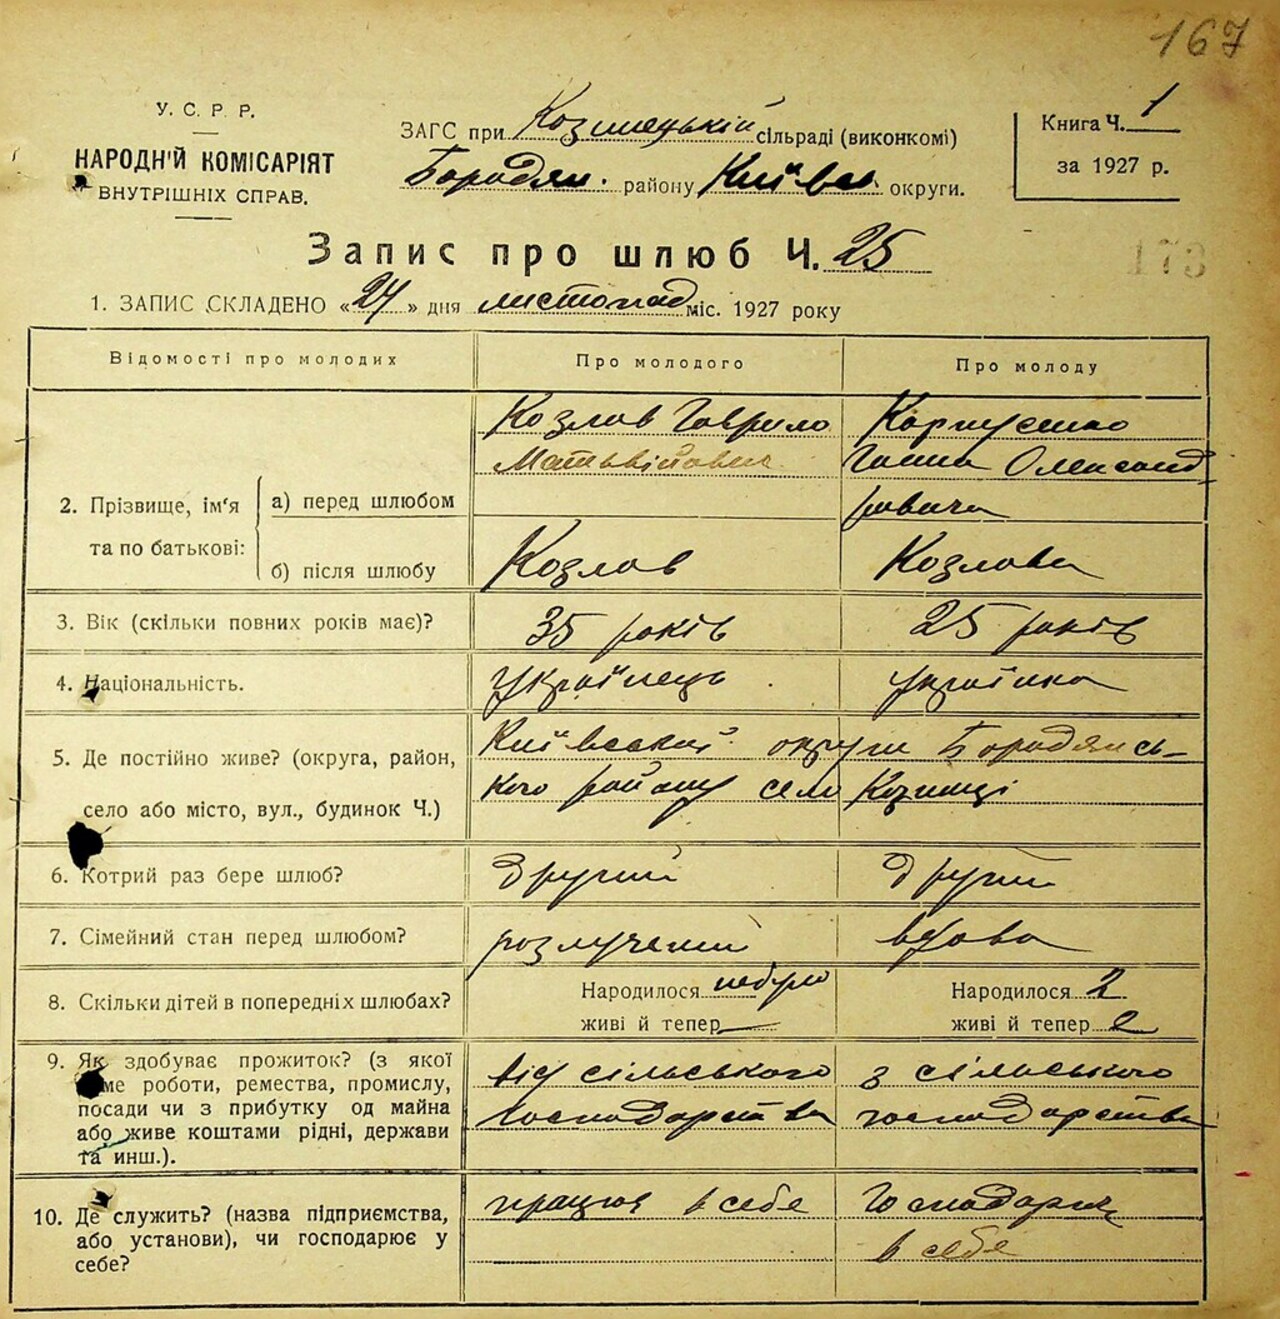 167
У. С. Р. Р.
НАРОДН'Й КОМІСАРІЯТ
ВНУТРІШНІХ СПРАВ.
ЗАГС при Козинецькій сільраді (виконкомі)
Бородян. району Київськ. округи.
Книга Ч. 1
за 1927 р.
Запис про шлюб Ч. 25
173
1. ЗАПИС СКЛАДЕНО «24» дня листопад міс. 1927 року
Відомості про молодих
Про молодого
Про молоду
2. Прізвище, ім'я
та по батькові:
а) перед шлюбом
Козлов Гаврило
Матьвійович
Ганна Олександ
ровича
б) після шлюбу
Козлов
Козлова
3. Вік (скільки повних років має)?
35 років
25 років
4. Національність.
Українець
українка
5. Де постійно живе? (округа, район,
село або місто, вул., будинок Ч.)
Київської округи Бородянсь-
кого району село Козинці
6. Котрий раз бере шлюб?
Другий
Другий
7. Сімейний стан перед шлюбом?
розлучений
вдова
8. Скільки дітей в попередніх шлюбах?
Народилося небуло
живі й тепер —
Народилося 2
живі й тепер 2
9. Як здобуває прожиток? (з якої
ме роботи, ремества, промислу,
посади чи з прибутку од майна
або живе коштами рідні, держави
та инш.).
від сільського
господарства
з сільського
господарства
10. Де служить? (назва підприємства,
або установи), чи господарює у
себе?
працює в себе
Господарює
в себе